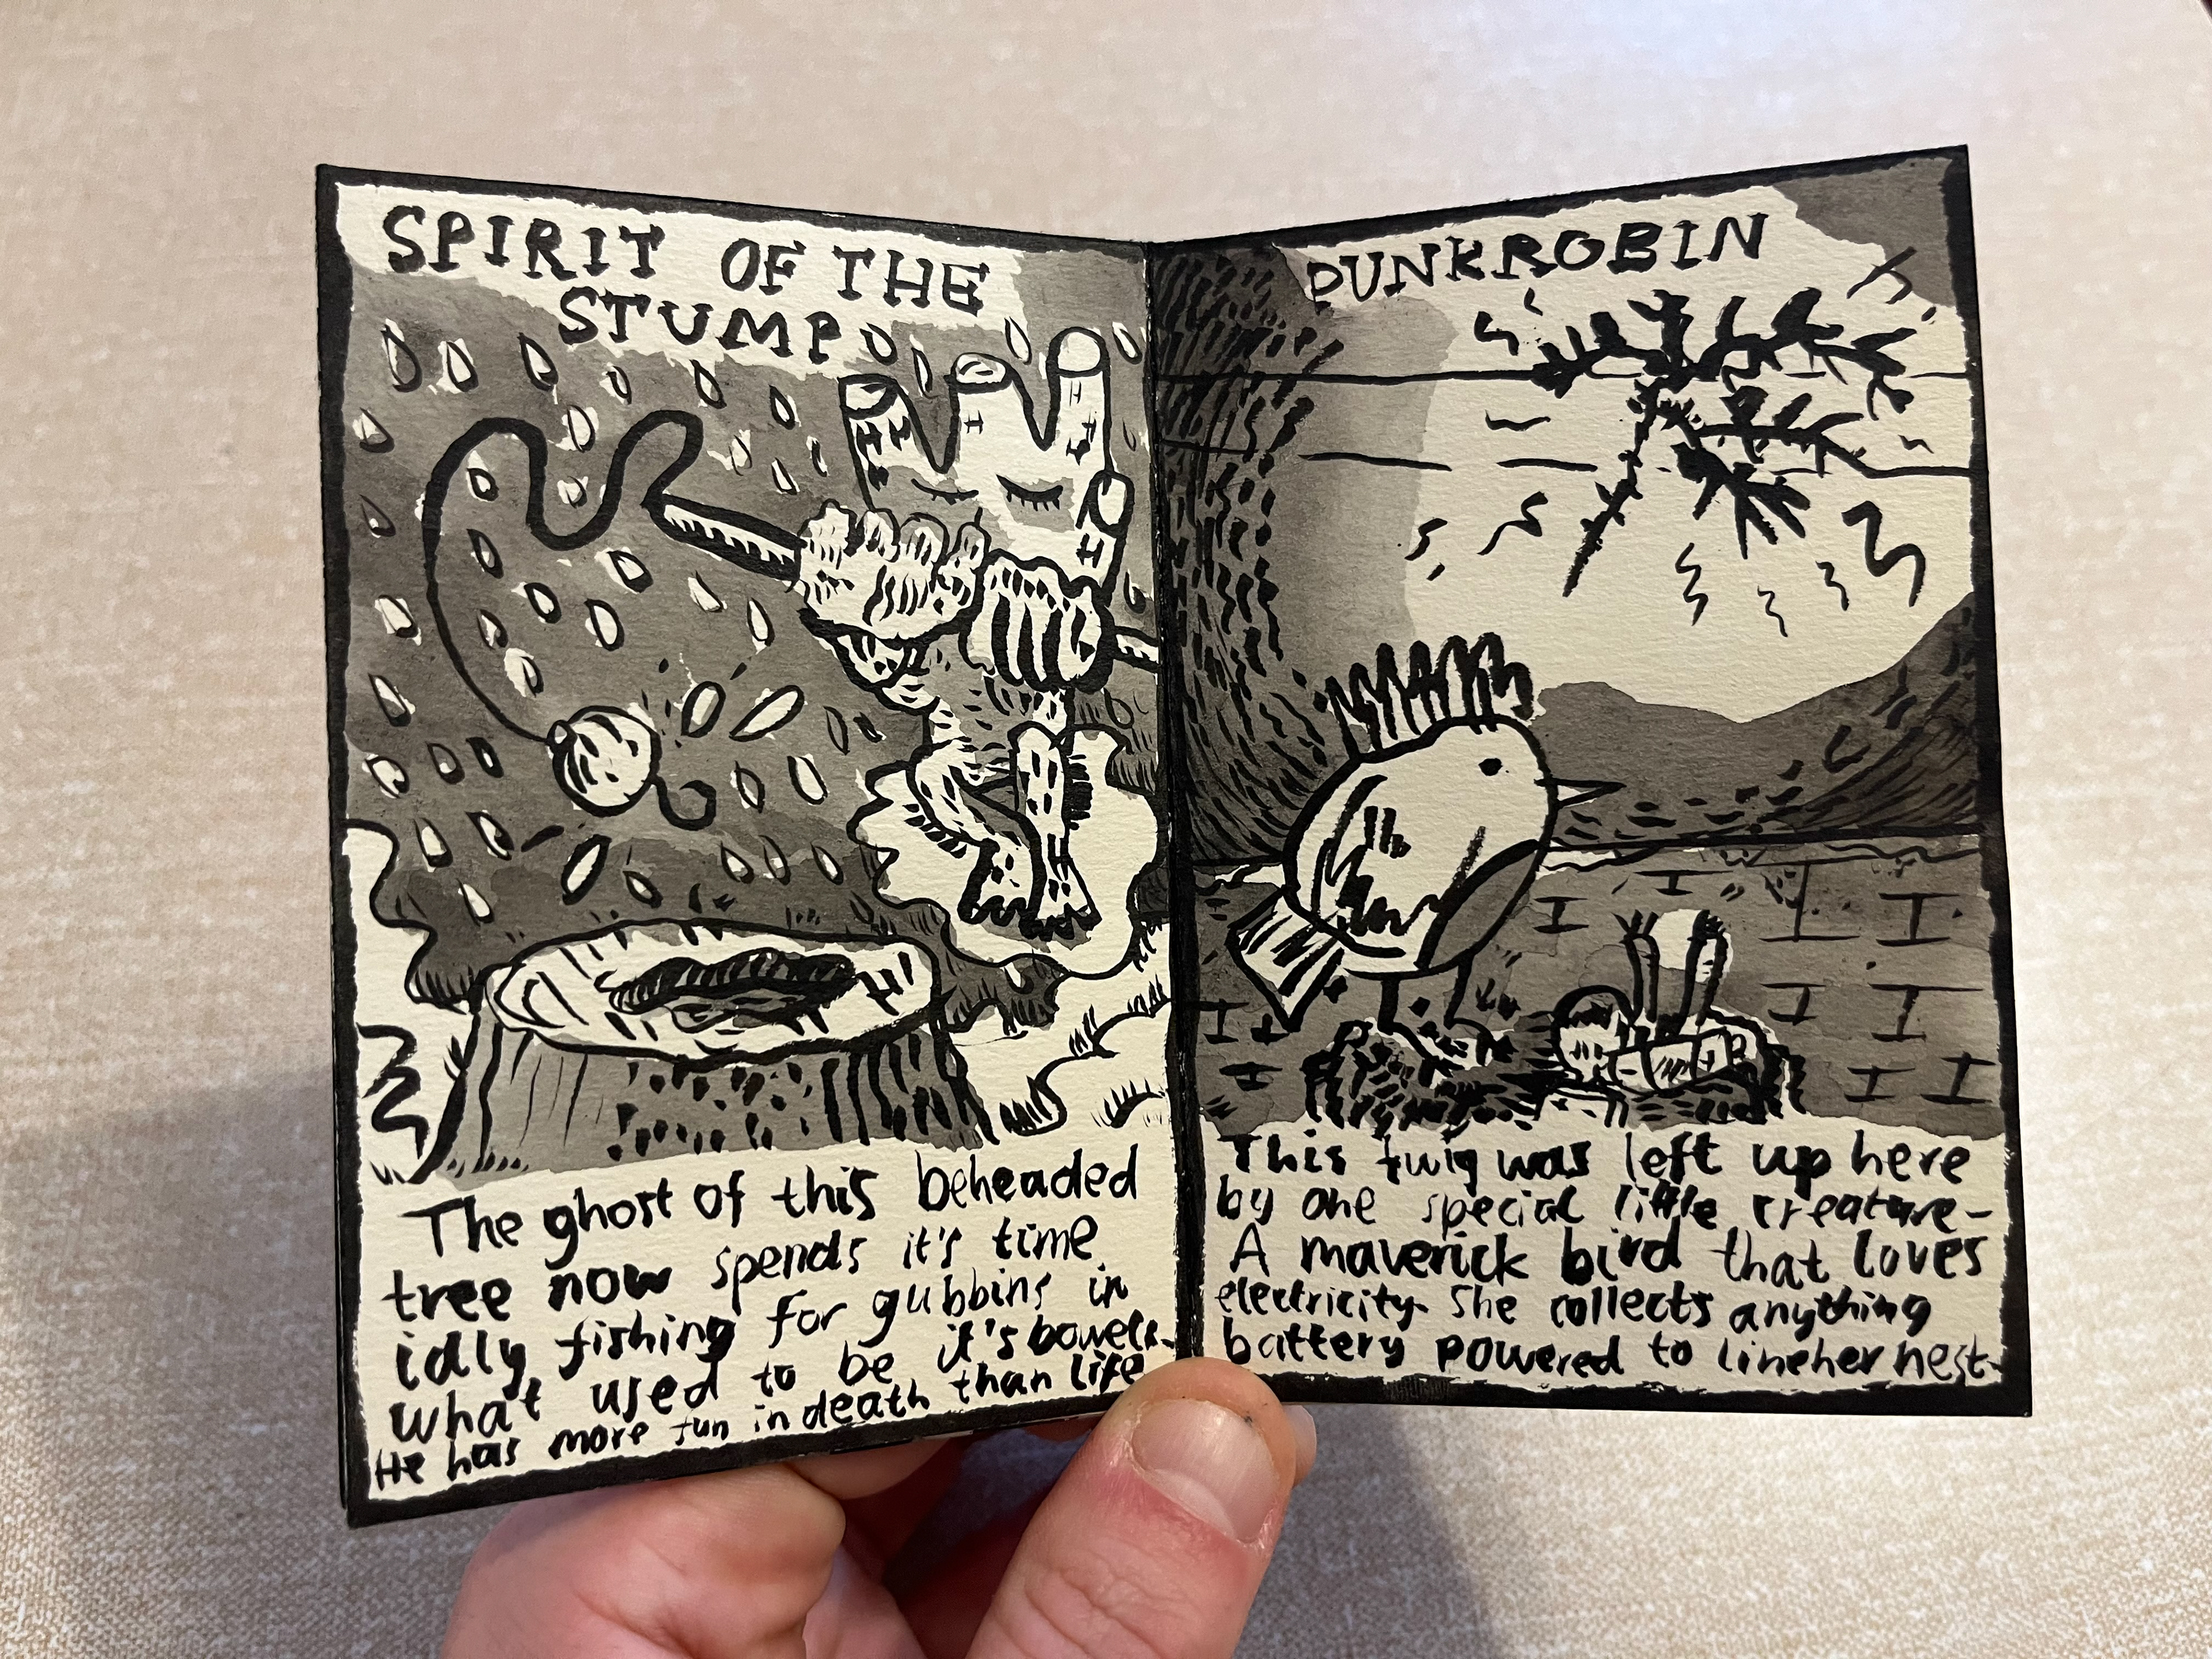 SPIRIT OF THE
STUMP
The ghost of this beheaded
tree now spends it's time
idly fishing for gubbins in
what used to be it's bowels.
He has more fun in death than life
PUNKROBIN
This twig was left up here
by one special little creature-
A maverick bird that loves
electricity. She collects anything
battery powered to line her nest.